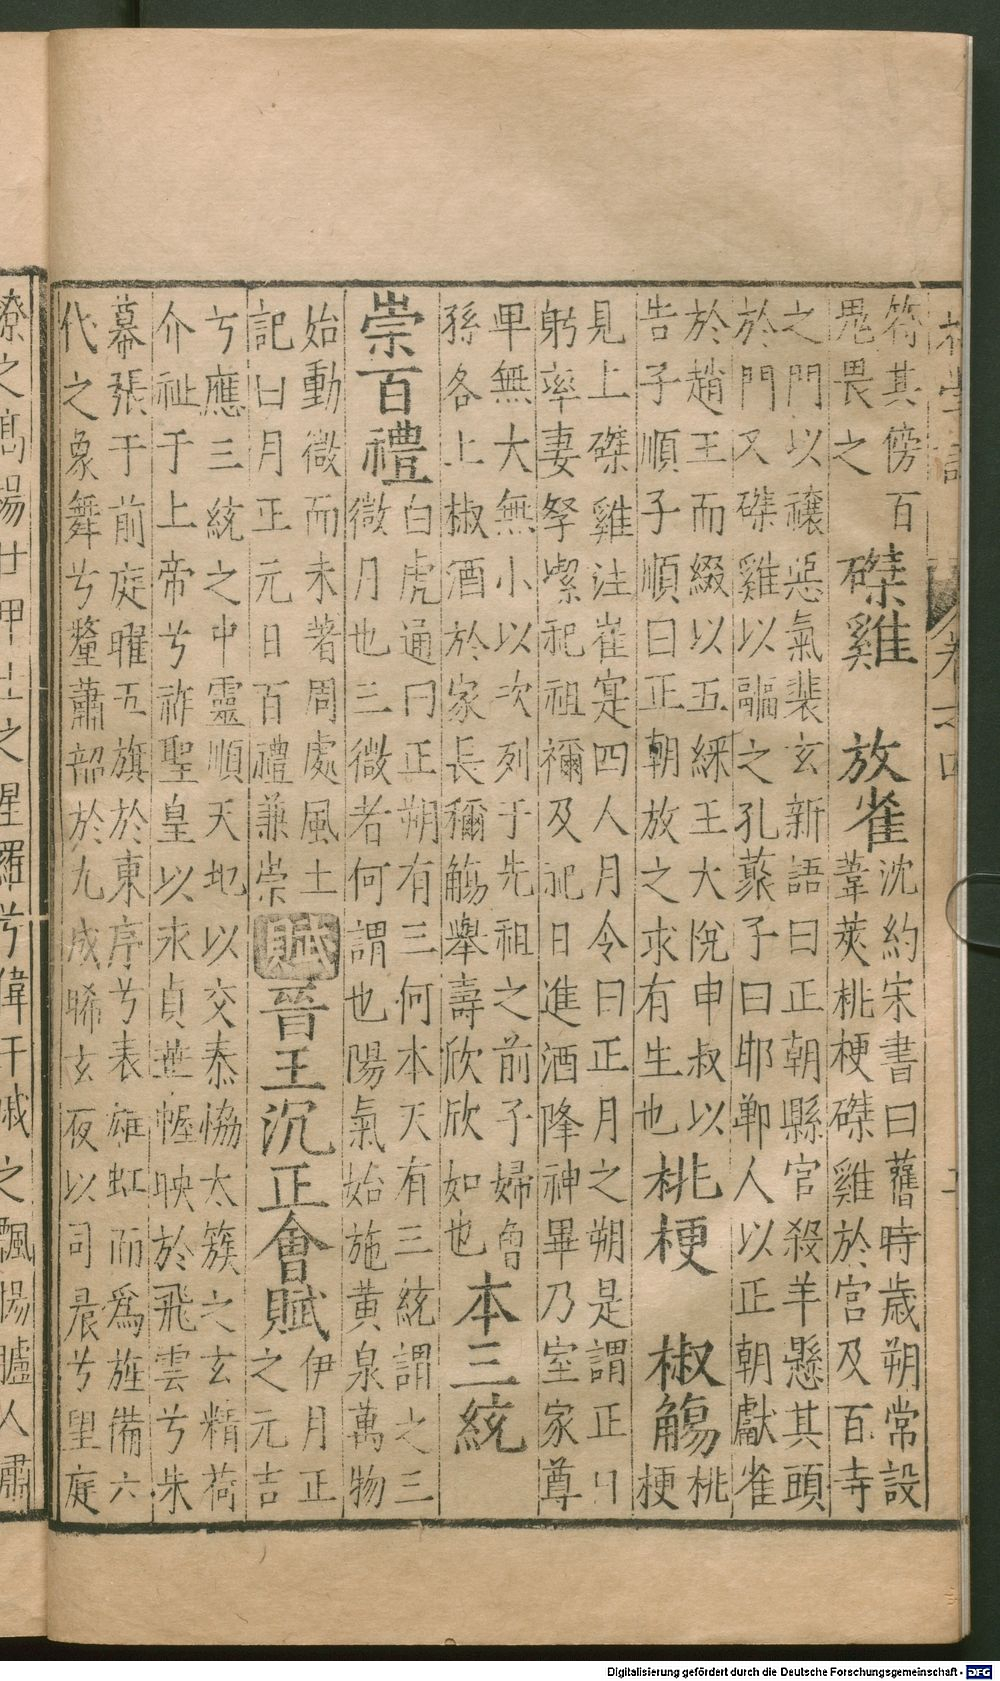 初學記 卷之四
符其傍百
鬼畏之
磔雞 放雀
沈約宋書曰舊時歲朔常設
葦茭桃梗磔雞於宮及百寺
之門以禳惡氣裴玄新語曰正朝縣官殺羊懸其頭
於門又磔雞以副之孔藂子曰邯鄲人以正朝獻雀
於趙王而綴以五綵王大悅申叔以
告子順子順曰正朝放之求有生也
桃梗 椒觴
桃
梗
見上磔雞注崔寔四人月令曰正月之朔是謂正日
躬率妻孥絜祀祖禰及祀日進酒降神畢乃室家尊
卑無大無小以次列于先祖之前子婦曾
孫各上椒酒於家長稱觴舉壽欣欣如也
本三統
崇百禮
白虎通曰正朔有三何本天有三統謂之三
微月也三微者何謂也陽氣始施黃泉萬物
始動微而未著周處風土
記曰月正元日百禮兼崇
賦 晉王沉正會賦
伊月正
之元吉
兮應三統之中靈順天地以交泰恊太簇之玄精荷
介祉于上帝兮祚聖皇以永貞華幄映於飛雲兮朱
幕張于前庭曜五旗於東序兮表雄虹而爲旌備六
代之象舞兮釐蕭韶於九成晞玄夜以司晨兮望庭
燎之高揚 之 羅兮偉干戚之飄揚臚人肅
Digitalisierung gefördert durch die Deutsche Forschungsgemeinschaft - DFG